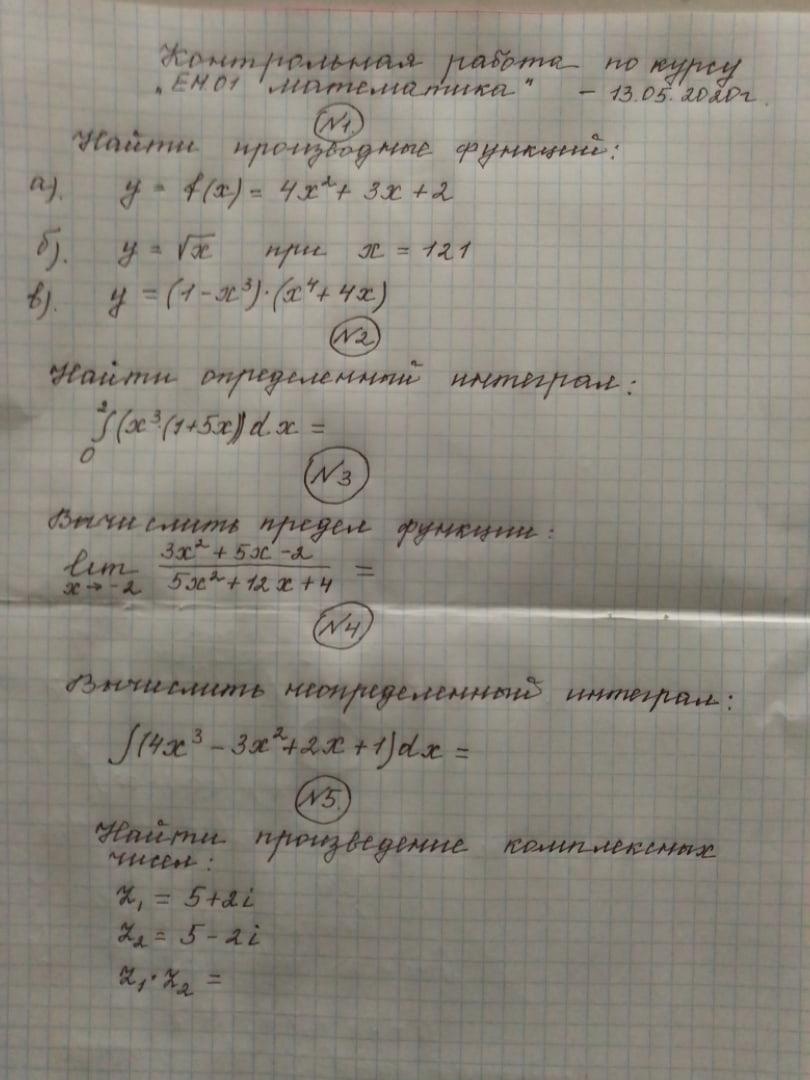 Контрольная работа по курсу
"ЕН.01 математика" - 13.05.2020г.
№1.
Найти производные функций:
а). y = f(x) = 4x² + 3x + 2
б). y = √x при x = 121
в). y = (1 - x³)·(x⁴ + 4x)
№2
Найти определенный интеграл:
₀∫²(x³·(1+5x))dx =
№3
Вычислить предел функции:
lim x→-2 (3x² + 5x - 2)/(5x² + 12x + 4) =
№4
Вычислить неопределенный интеграл:
∫(4x³ - 3x² + 2x + 1)dx =
№5.
Найти произведение комплексных
чисел:
z₁ = 5+2i
z₂ = 5-2i
z₁·z₂ =